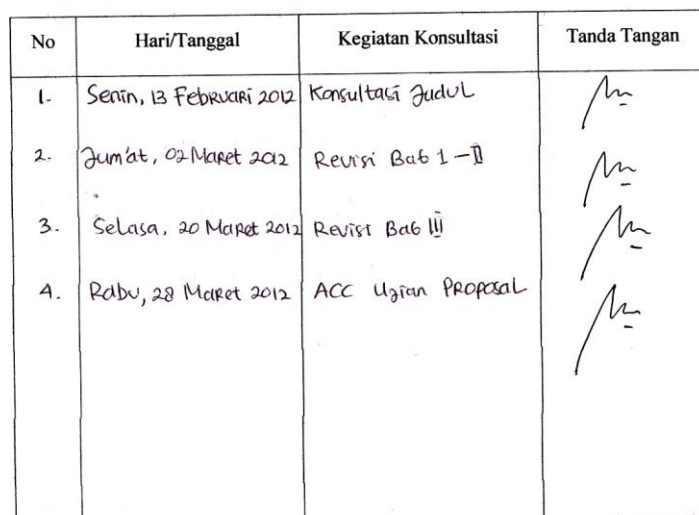 No Hari/Tanggal Kegiatan Konsultasi Tanda Tangan
1. Senin, 13 Februari 2012 Konsultasi Judul
2. Jum'at, 02 Maret 2012 Revisi Bab 1 - II
3. Selasa, 20 Maret 2012 Revisi Bab III
4. Rabu, 28 Maret 2012 ACC Ujian Proposal